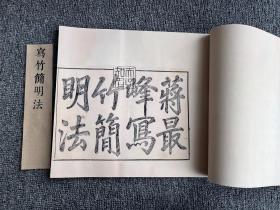 蔣最
峰寫
竹簡
明法
寫竹簡明法